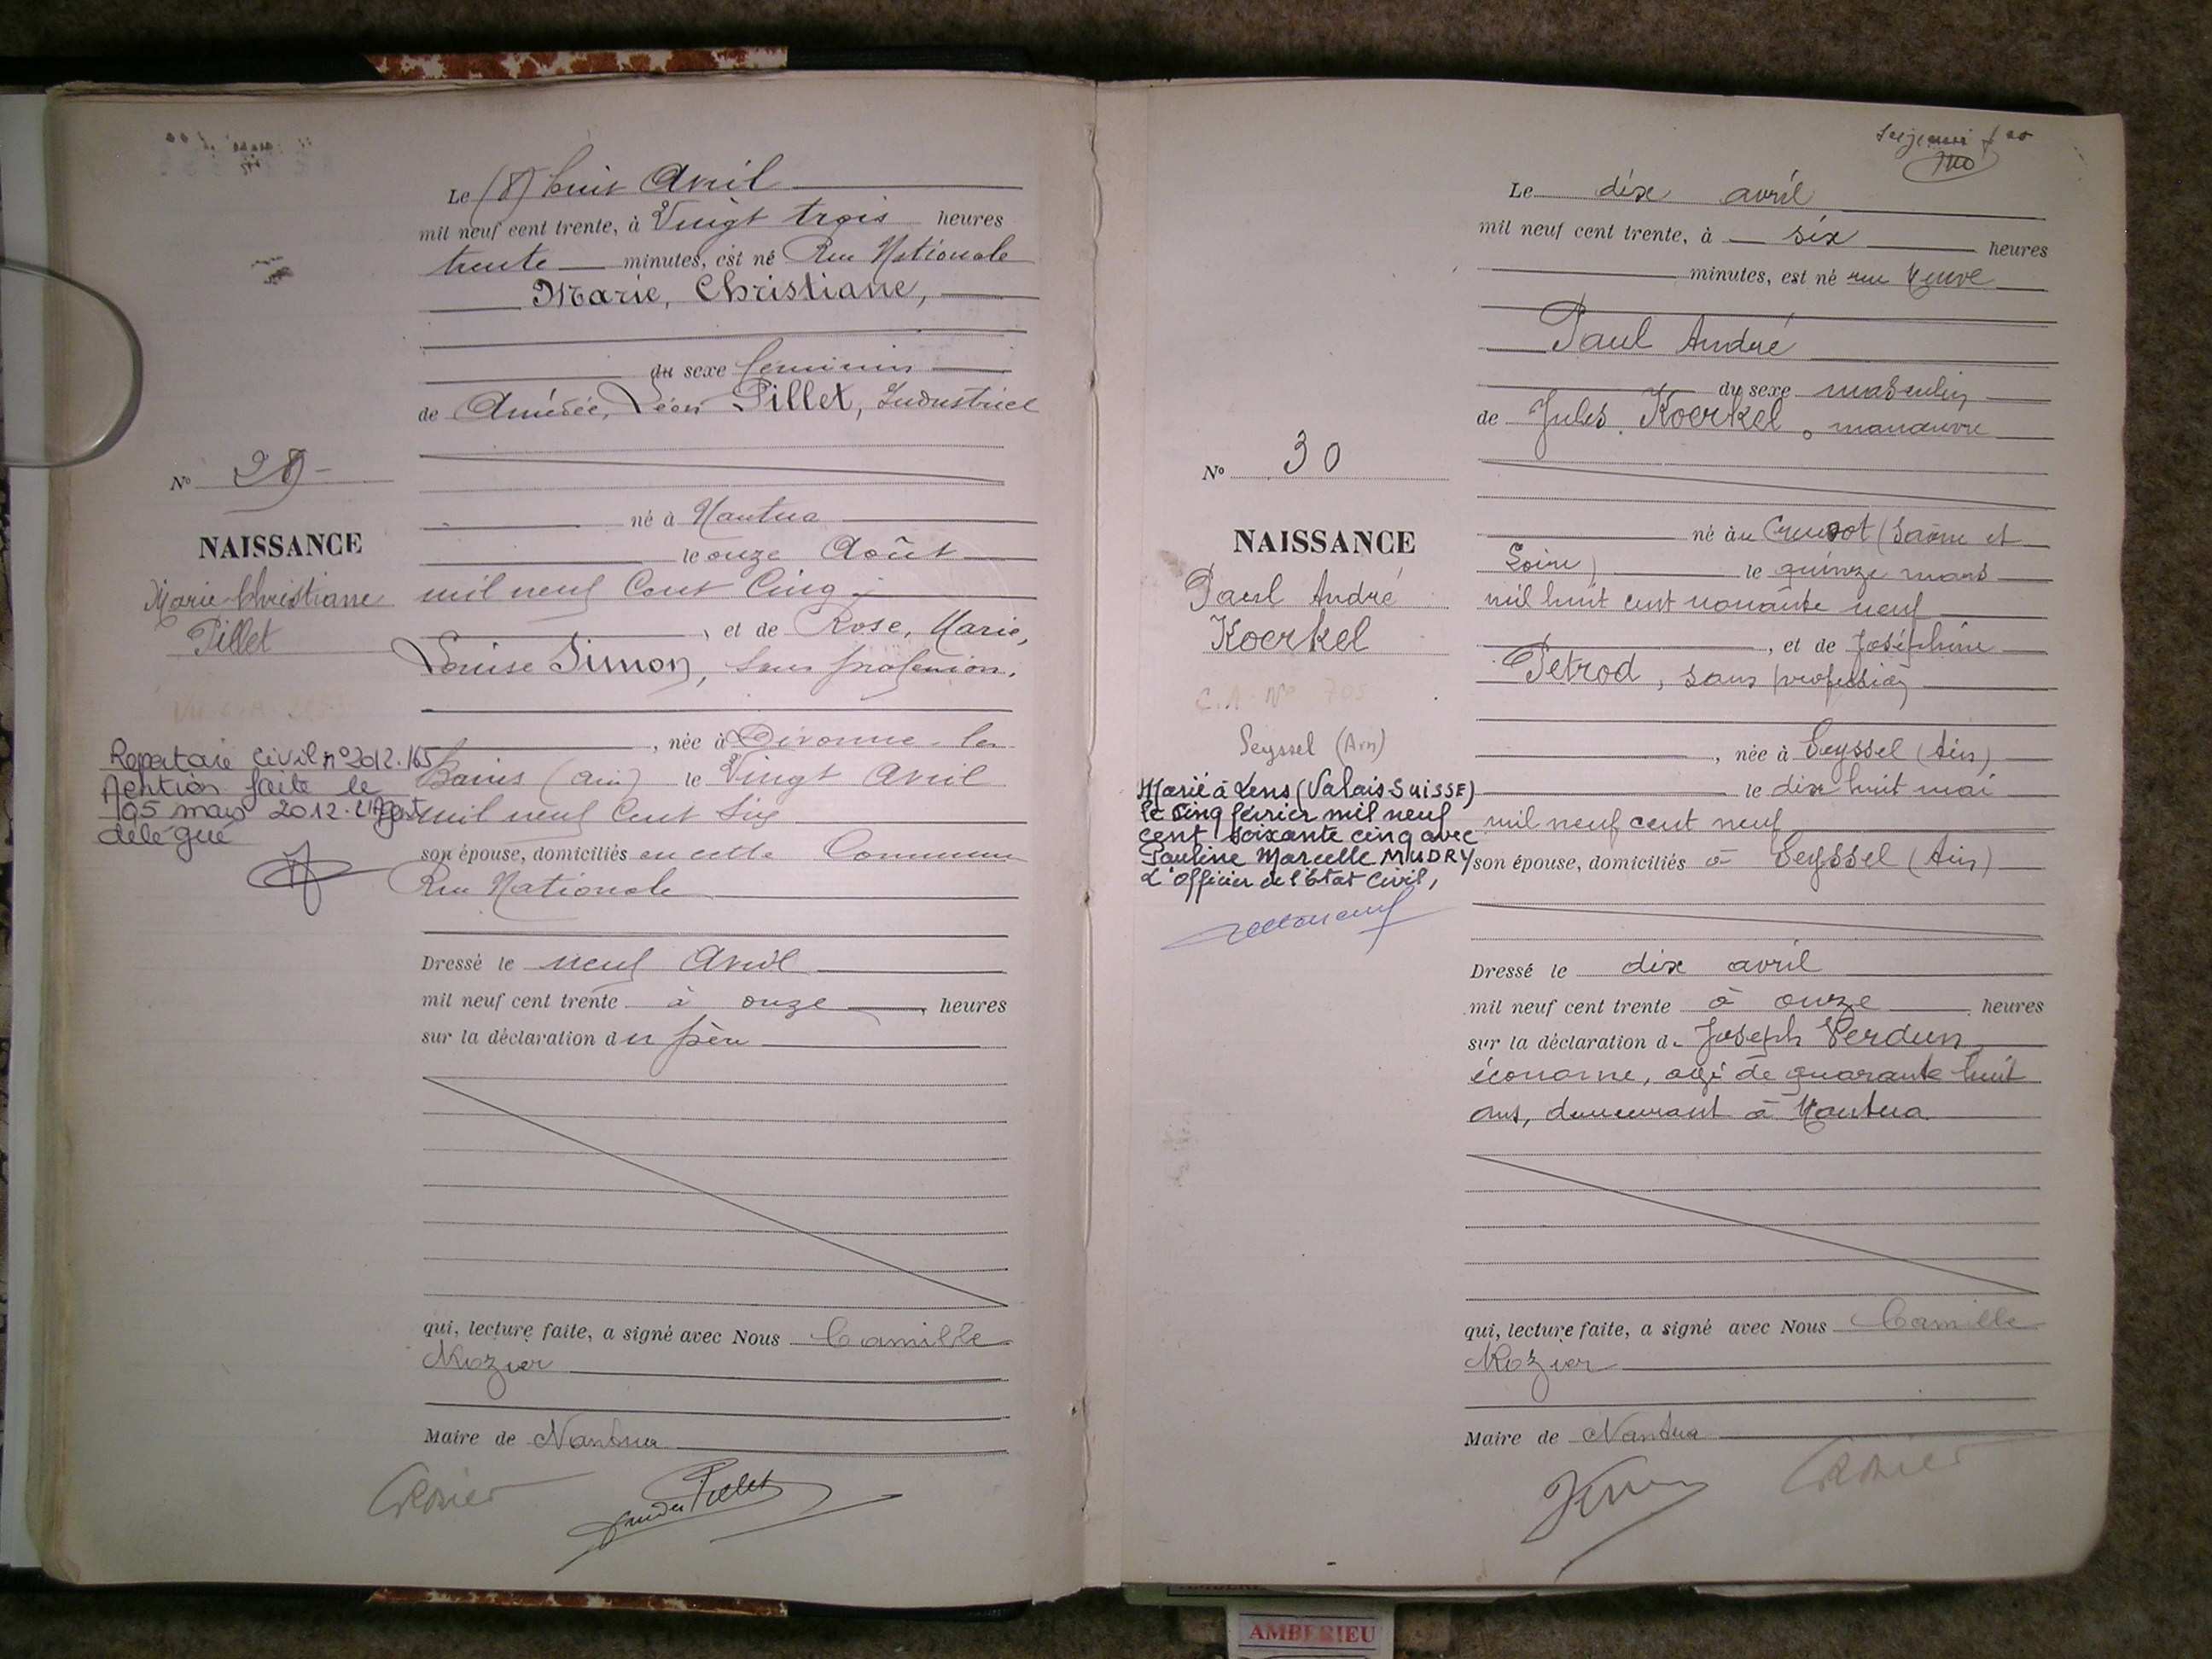 Le (8) huit Avril
mil neuf cent trente, à Vingt trois heures
trente minutes, est né Rue Nationale
Marie, Christiane,
du sexe féminin
de Amédée, Léon Pillet, Industriel
né à Nantua
le onze Août
mil neuf Cent Cinq
, et de Rose, Marie,
Louise Simon, sans profession.
, née à Divonne-les
Bains (Ain) le Vingt Avril
mil neuf Cent Six
son épouse, domiciliés en cette Commune
Rue Nationale
Dressé le neuf Avril
mil neuf cent trente à onze heures
sur la déclaration du père
qui, lecture faite, a signé avec Nous Camille
Rozier
Maire de Nantua
Nº 29
NAISSANCE
Marie Christiane
Pillet
Repertoire Civil nº 2012.165
Mention faite le
05 mars 2012. L'Agent
délégué
Le dix avril
mil neuf cent trente, à six heures
minutes, est né rue Neuve
Paul André
du sexe masculin
de Jules Koerkel, manœuvre
né au Creusot (Saône et
Loire) le quinze mars
mil huit cent nonante neuf
, et de Joséphine
Petrod, sans profession
, née à Seyssel (Ain)
le dix huit mai
mil neuf cent neuf
son épouse, domiciliés à Seyssel (Ain)
Dressé le dix avril
mil neuf cent trente à onze heures
sur la déclaration d. Joseph Verdun
économe, agé de quarante huit
ans, demeurant à Nantua
qui, lecture faite, a signé avec Nous Camille
Rozier
Maire de Nantua
Nº 30
NAISSANCE
Paul André
Koerkel
C.N. Nº 705
Seyssel (Ain)
Marié à Lens (Valais-SUISSE)
le cinq février mil neuf
cent soixante cinq avec
Pauline Marcelle MUDRY
L'Officier de l'Etat Civil,
AMBERIEU